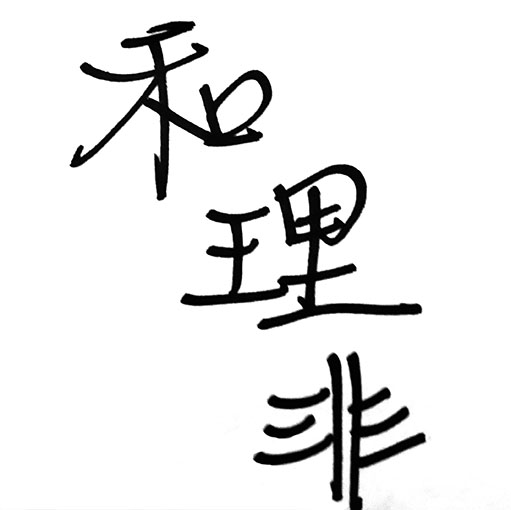 和
理
非